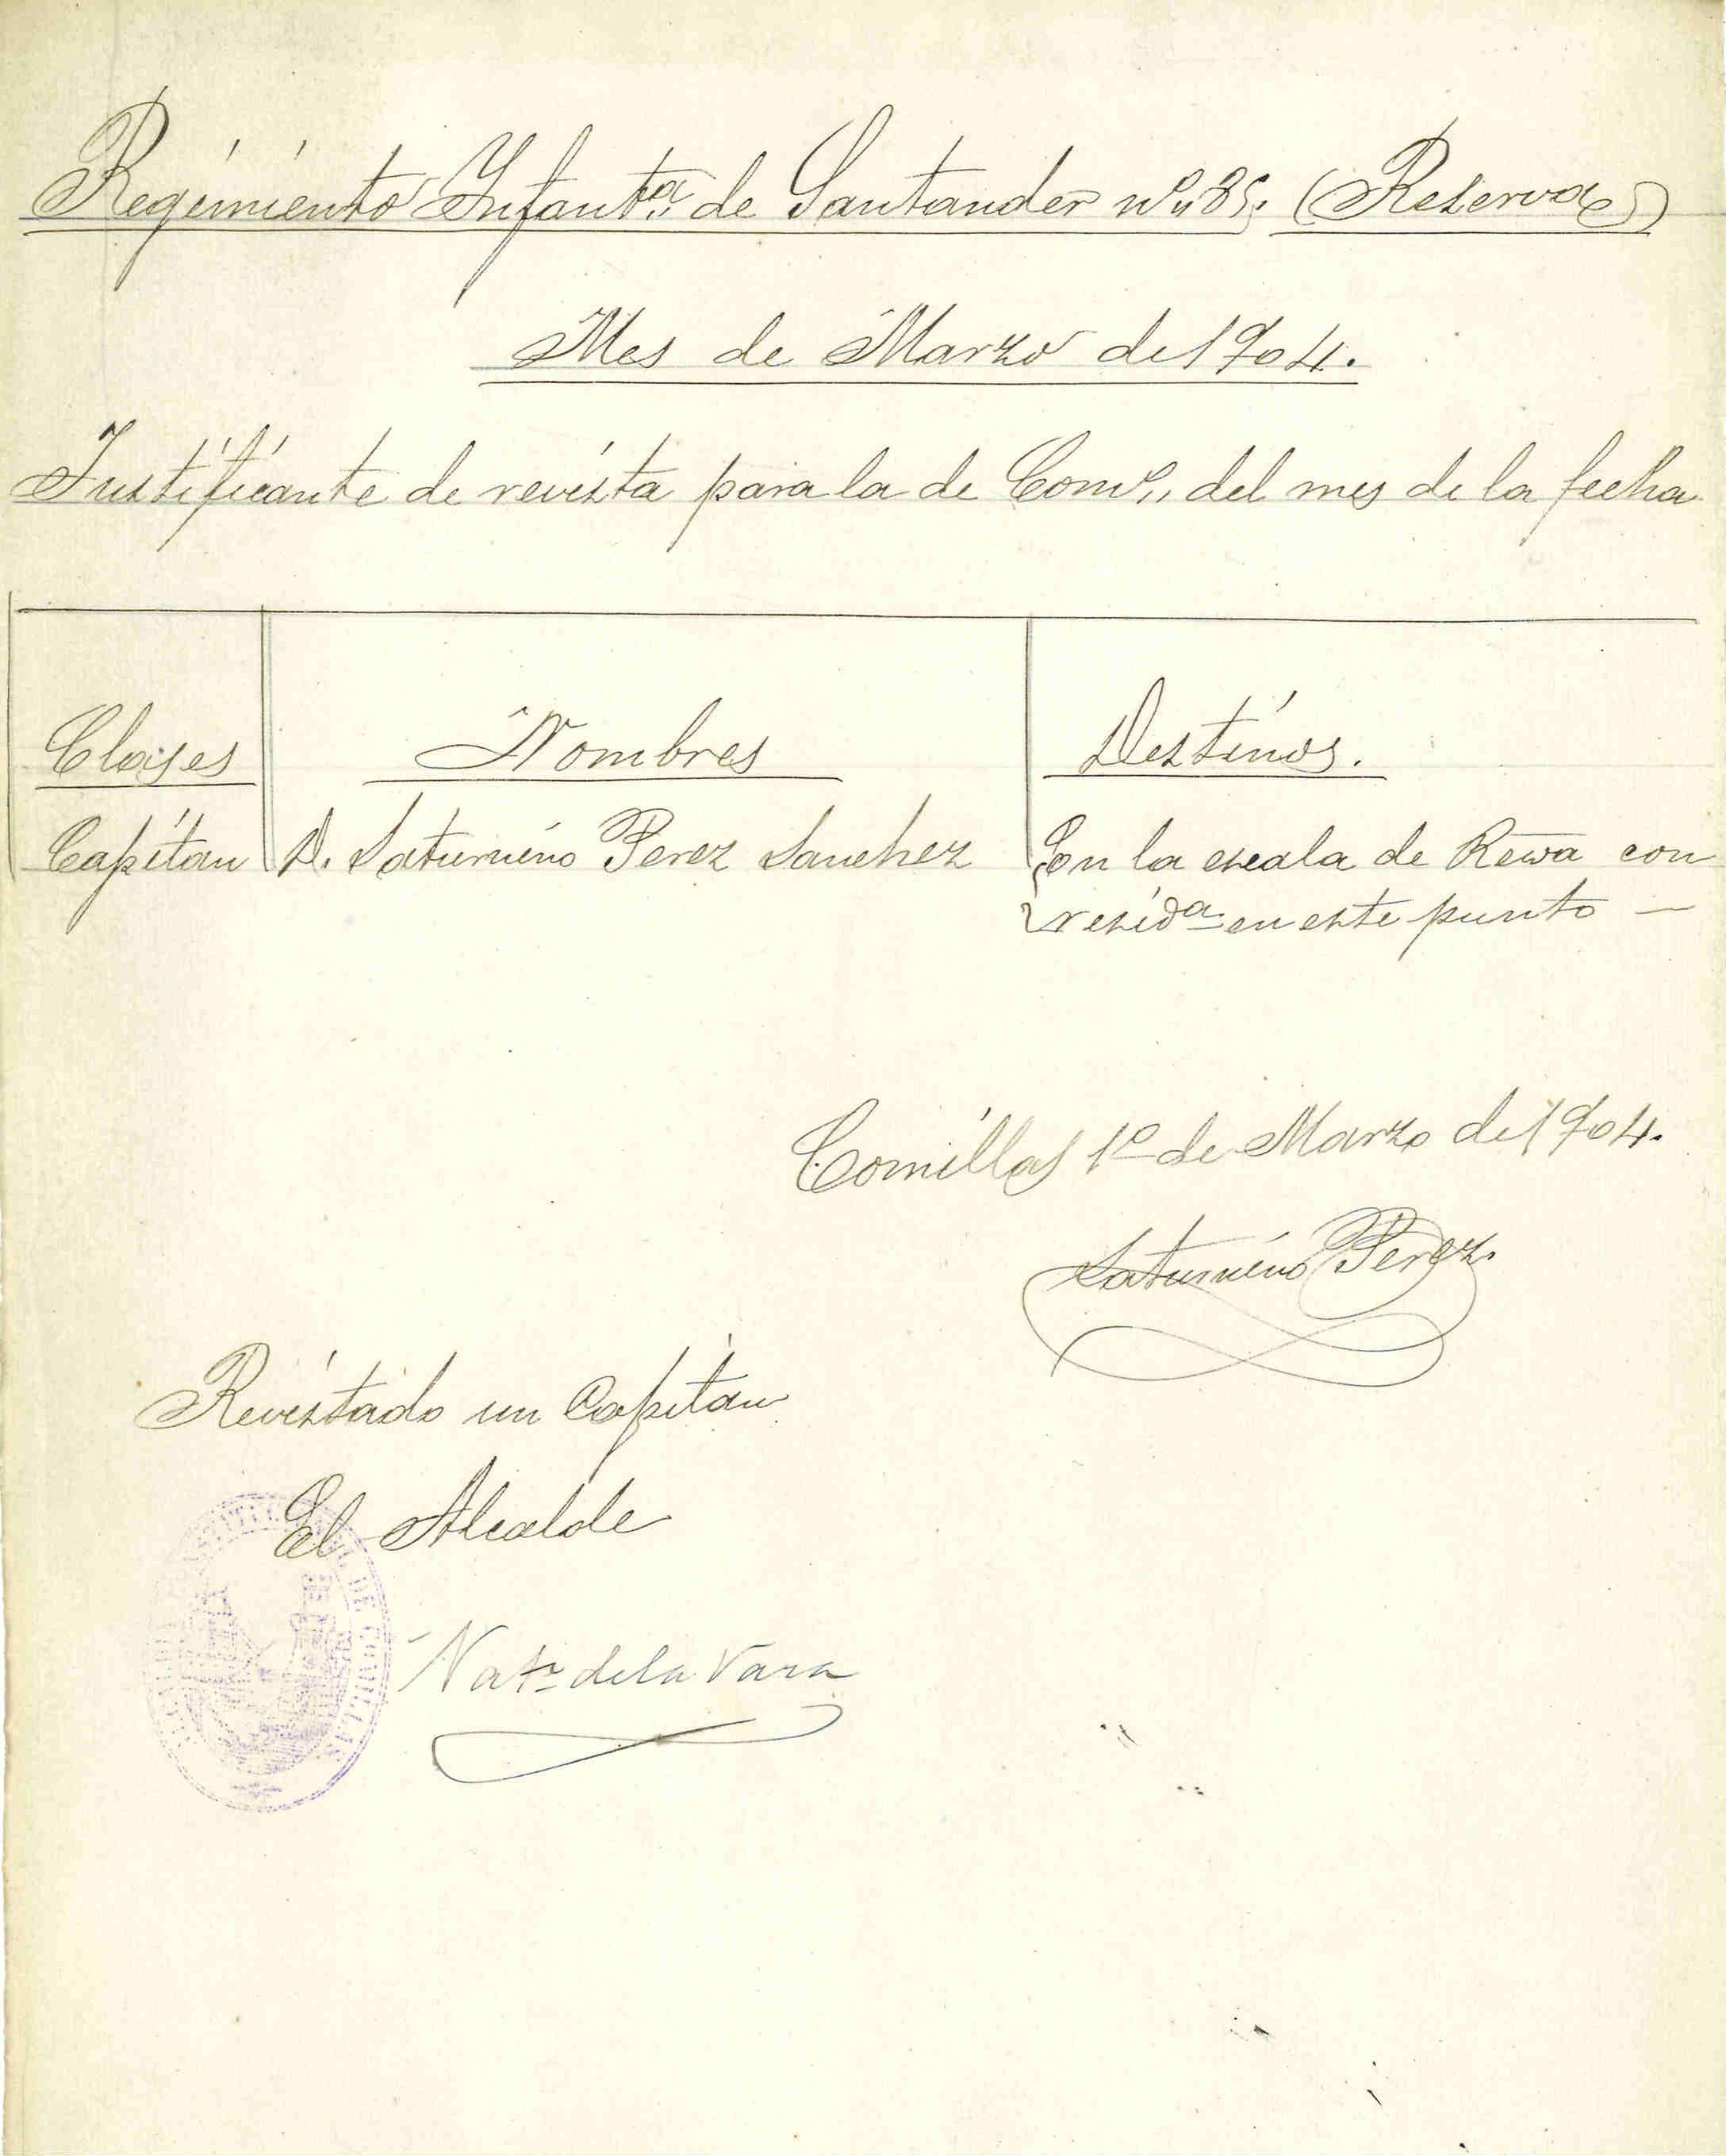 Regimiento Infantª de Santander nº 85. (Reserva)
Mes de Marzo de 1904.
Justificante de revista para la de Comº,, del mes de la fecha
Clases Nombres Destinos.
Capitan D. Saturnino Perez Sanchez En la escala de Rewa con
residª en este punto —
Comillas 1º de Marzo de 1904.
Saturnino Perez.
Revistado un Capitan
El Alcalde
DE COMILLAS
Natº de la Vara